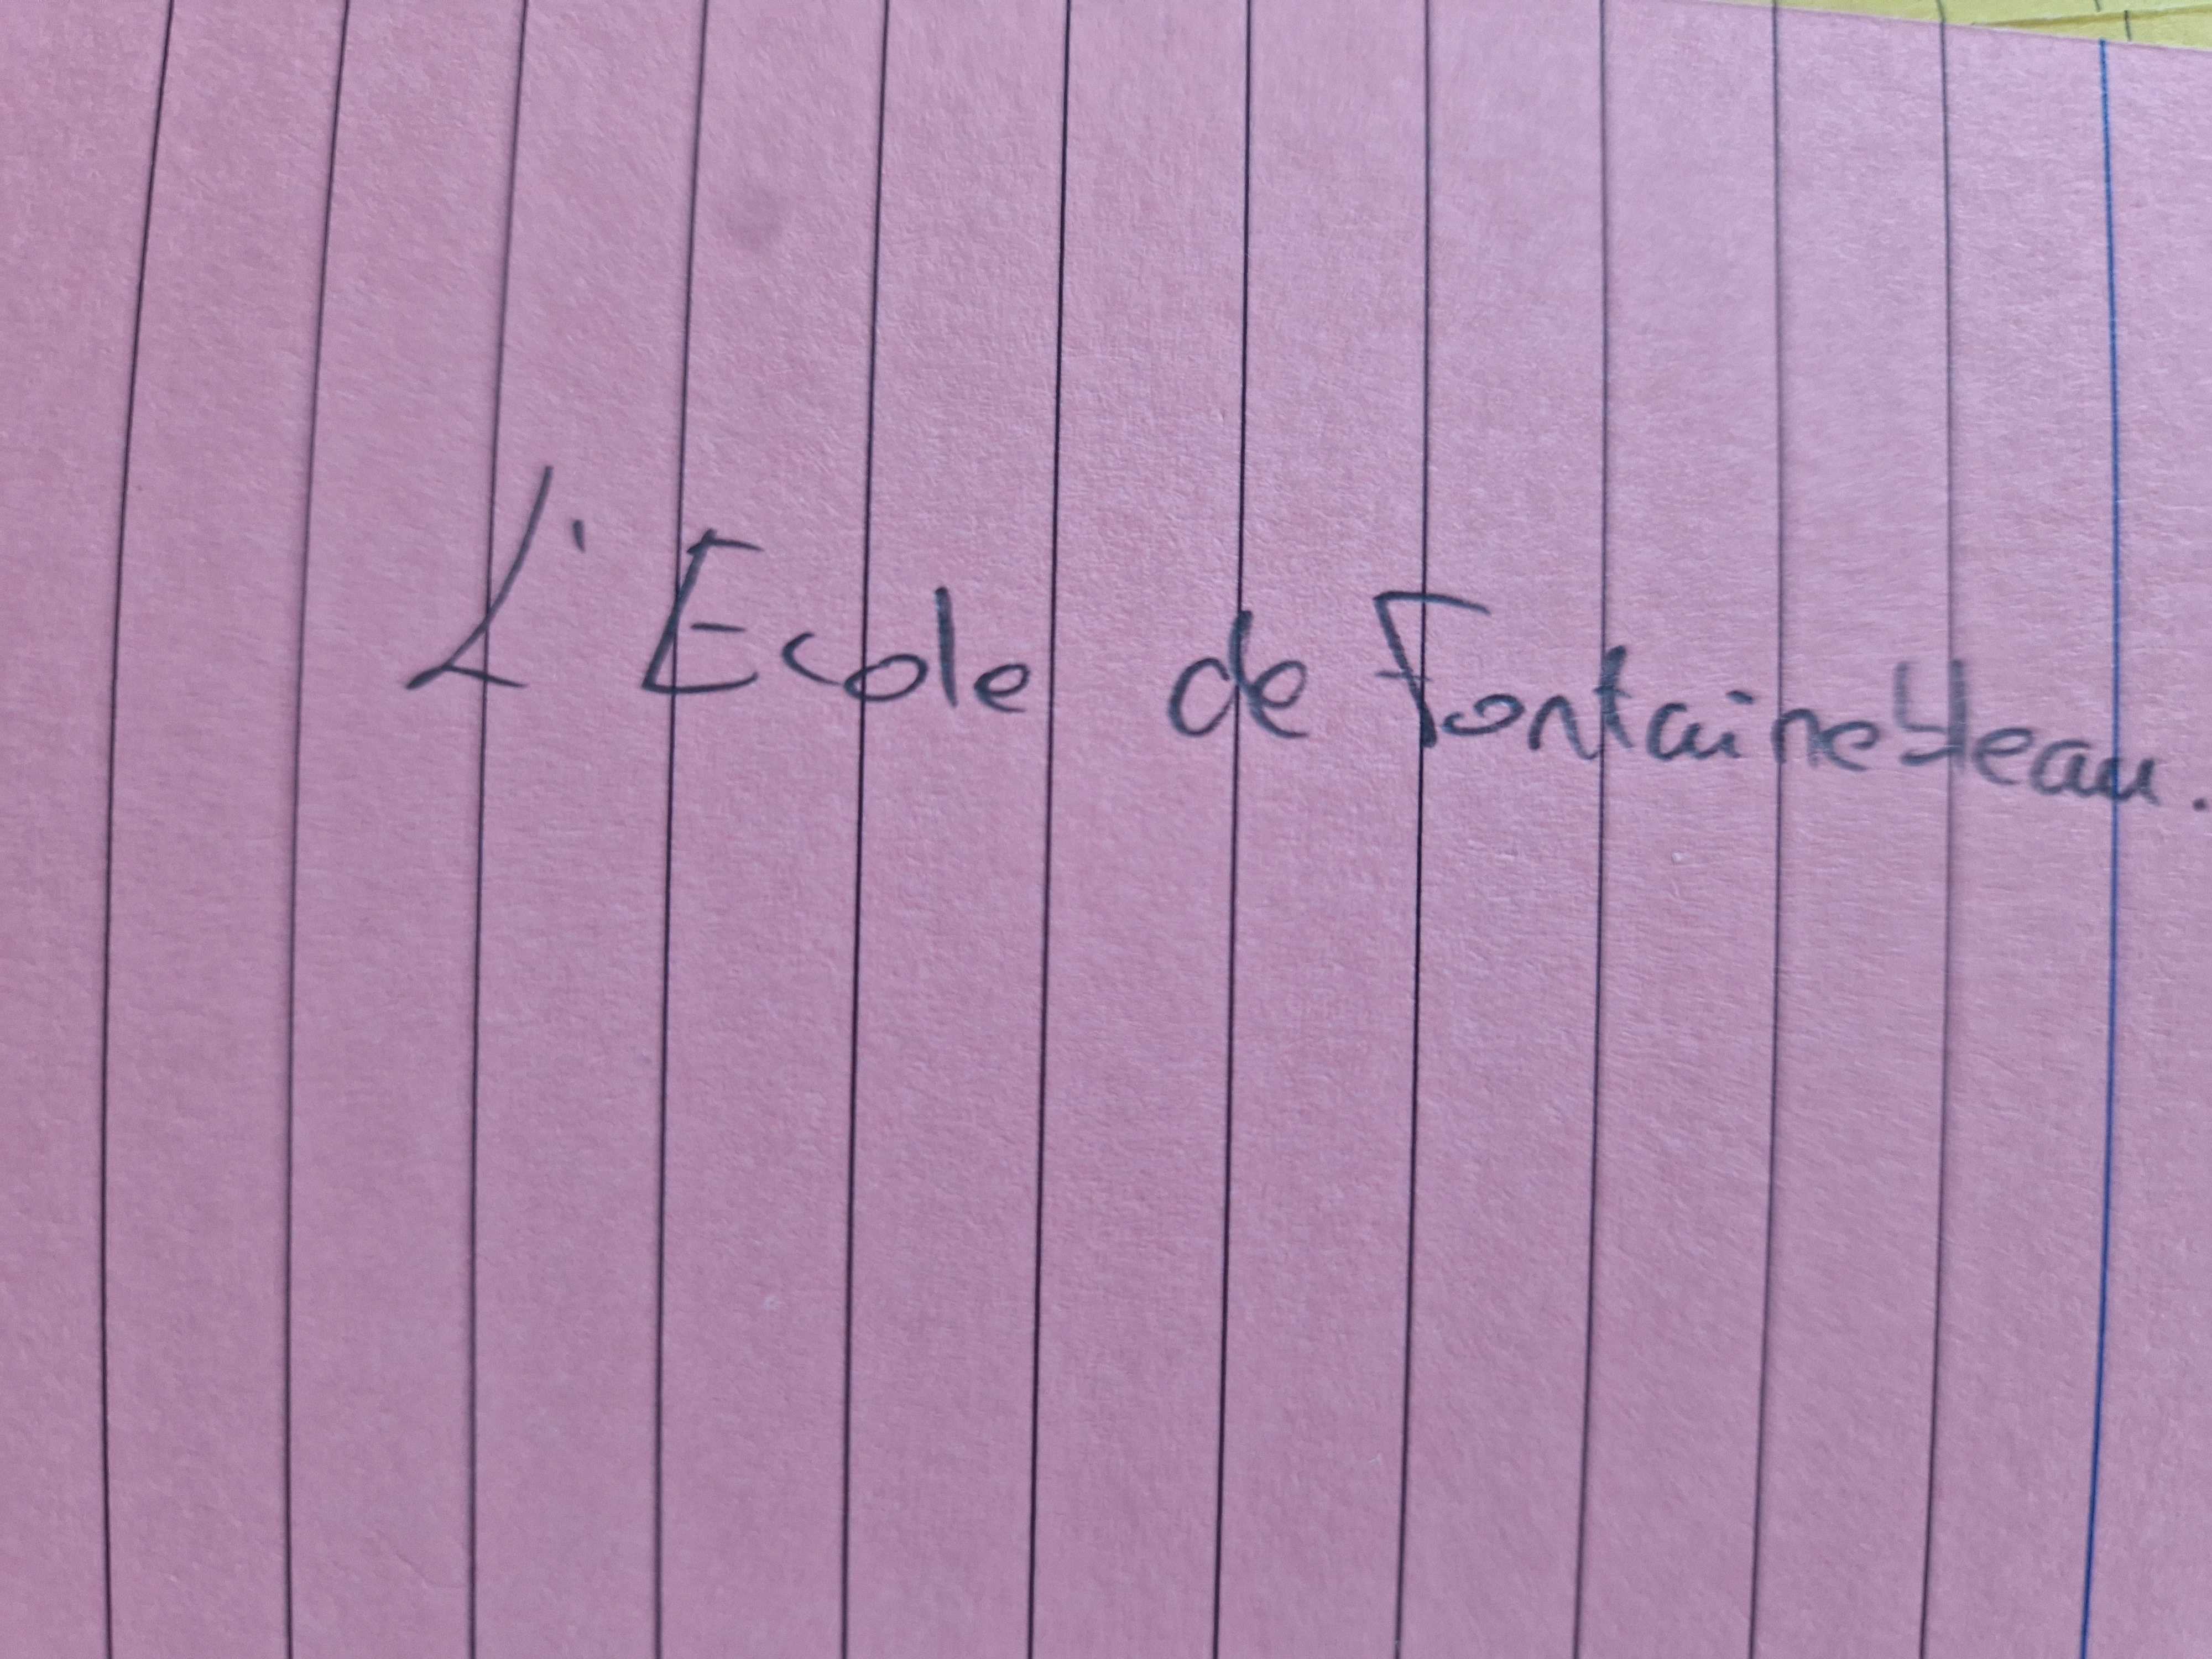 L'Ecole de Fontainebleau.